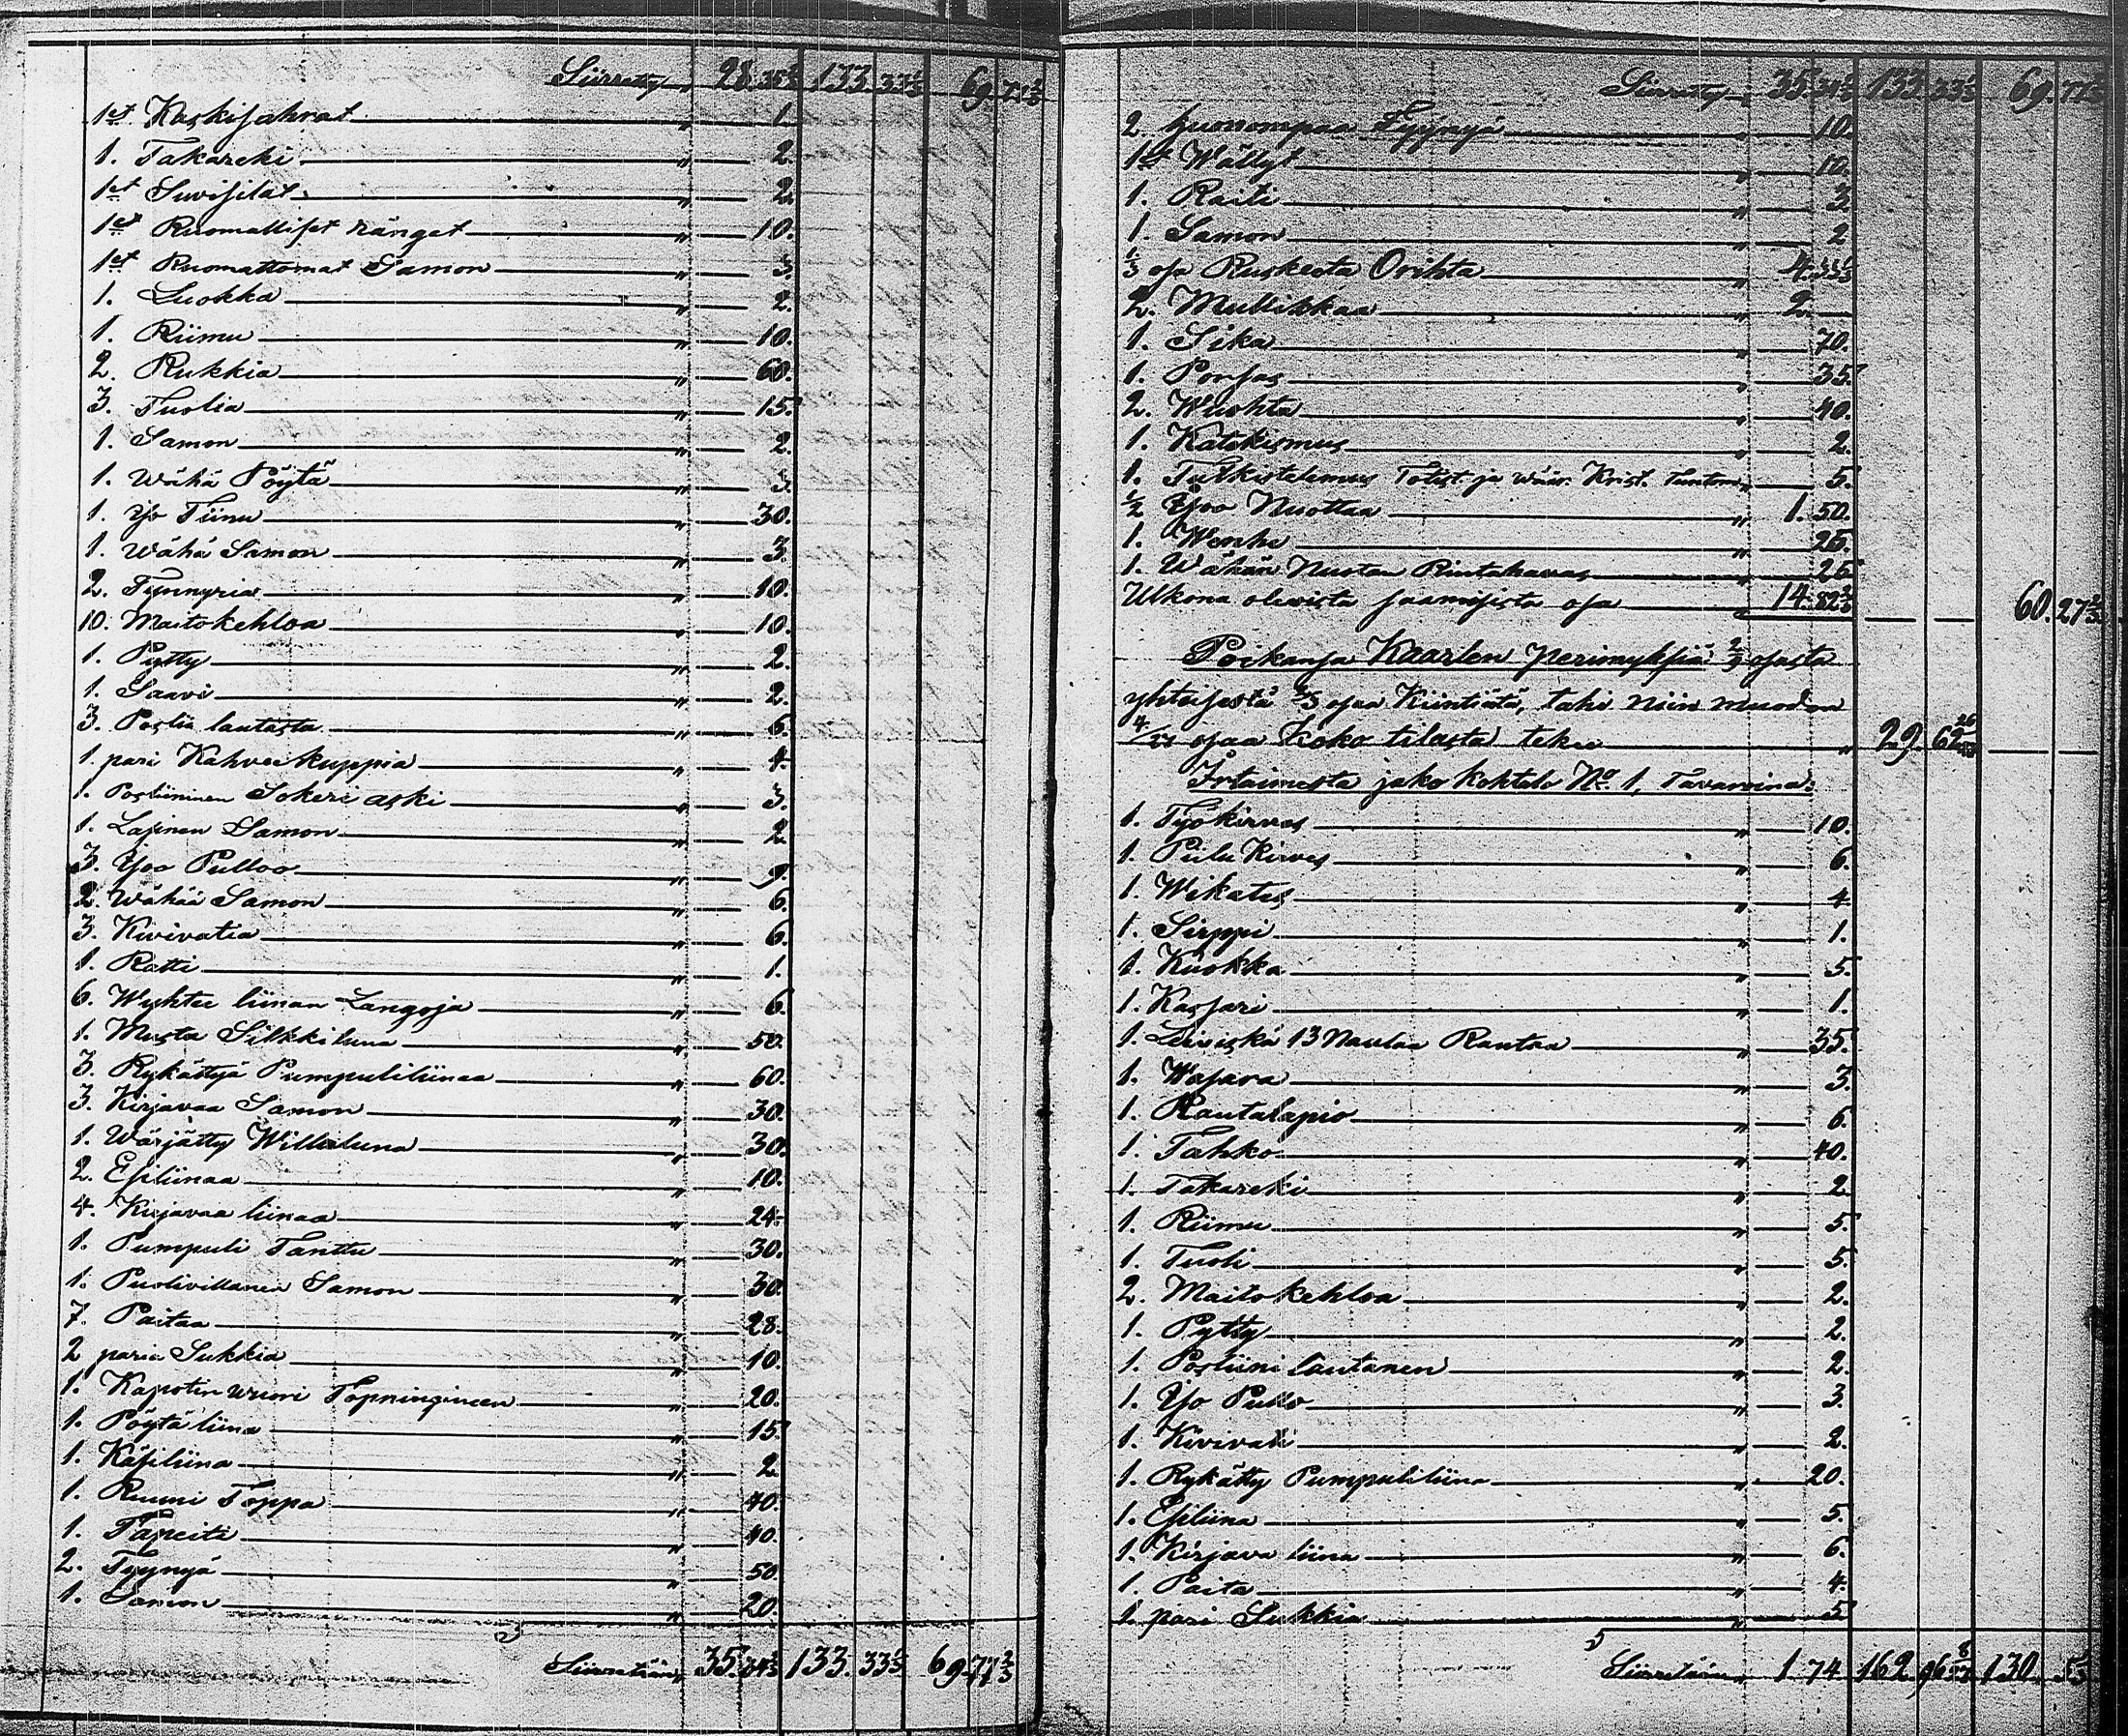 Siirretty „ 28. 35 2/3 133. 33 1/3 69. 71 2/3
1et Kaskisahrat „ 1.
1. Takareki „ 2.
1et Suvisilat „ 2.
1et Ruomalliset ränget „ 10.
1et Ruomattomat Samon „ 3.
1. Luokka „ 2.
1. Riimu „ 10.
2. Rukkia „ 60.
3. Tuolia „ 15.
1. Samon „ 2.
1. Wähä Pöytä „ 3.
1. Iso Tiinu „ 30.
1. Wähä Samon „ 3.
2. Tynnyriä „ 10.
10. Maitokehloa „ 10.
1. Pytty „ 2.
1. Saavi „ 2.
3. Poslia lautasta „ 6.
1. pari Kahveekuppia „ 4.
1. Posliininen Sokeri aski „ 3.
1. Lasinen Samon „ 2.
3. Isoo Pulloo „ 9.
2. Wähää Samon „ 6.
3. Kivivatia „ 6.
1. Ratti „ 1.
6. Wyhtee liinan Langoja „ 6.
1. Musta Silkkiliina „ 50.
3. Rykättyä Pumpuliliinaa „ 60.
3. Kirjavaa Samon „ 30.
1. Wärjätty Willaliina „ 30.
2. Esiliinaa „ 10.
4. Kirjavaa liinaa „ 24.
1. Pumpuli Tanttu „ 30.
1. Puolivillanen Samon „ 30.
7. Paitaa „ 28.
2 paria Sukkia „ 10.
1. Kapotin wuori Topningineen „ 20.
1. Pöytä liina „ 15.
1. Käsiliina „ 2.
1. Ruuni Toppa „ 40.
1. Täpeiti „ 40.
2. Tyynyä „ 50.
1. Samon „ 20.
Siirretään „ 35. 34 2/3 133. 33 1/3 69. 71 2/3
Siirretty „ 35. 34 2/3 133. 33 1/3 69. 71 2/3
2. huonompaa Tyynyä „ 10.
1et Wällyt „ 10.
1. Raiti „ 3.
1. Samon „ 2
1/3 osa Ruskeeta Orihta „ 4. 33 1/3
2. Mullikkaa „ 2. —
1. Sika „ 70.
1. Porsas „ 35.
2. Wuohta „ 40.
1. Katekismus „ 2.
1. Tutkistelemus Totist. ja wäär. Krist. Tuntom. „ 5.
1/2 Isoo Nuottaa „ 1. 50.
1. Wenhe „ 25.
1. Wähän Nuotan Rintahavas „ 25.
Ulkona olevista saamisista osa 14. 82 2/3 60. 27 2/3
Poikansa Kaarlen perimyksiä 2/9 osasta
yhteisestä 2/3 osaa Kiintiötä, tahi niin muodon
4/27 osaa koko tilasta tekee „ 29. 62
Irtaimesta jako kohtelo No. 1, Tavaroina:
1. Työkirves „ 10.
1. Piilu Kirves „ 6.
1. Wikates „ 4
1. Sirppi „ 1.
1. Kuokka „ 5.
1. Kassari „ 1.
1. Leiviskä 13 Naulaa Rautaa „ 35.
1. Wasara „ 3.
1. Rautalapio „ 6.
1. Tahko „ 40.
1. Takareki „ 2
1. Riimu „ 5.
1. Tuoli „ 5.
2. Maitokehloa „ 2.
1. Pytty „ 2.
1. Posliini lautanen „ 2.
1. Iso Pullo „ 3.
1. Kivivati „ 2.
1. Rykätty Pumpuliliina „ 20.
1. Esiliina „ 5.
1. Kirjava liina „ 6.
1. Paita „ 4.
1. pari Sukkia „ 5
Siirretään „ 1 74 162. 96 8/27 130.